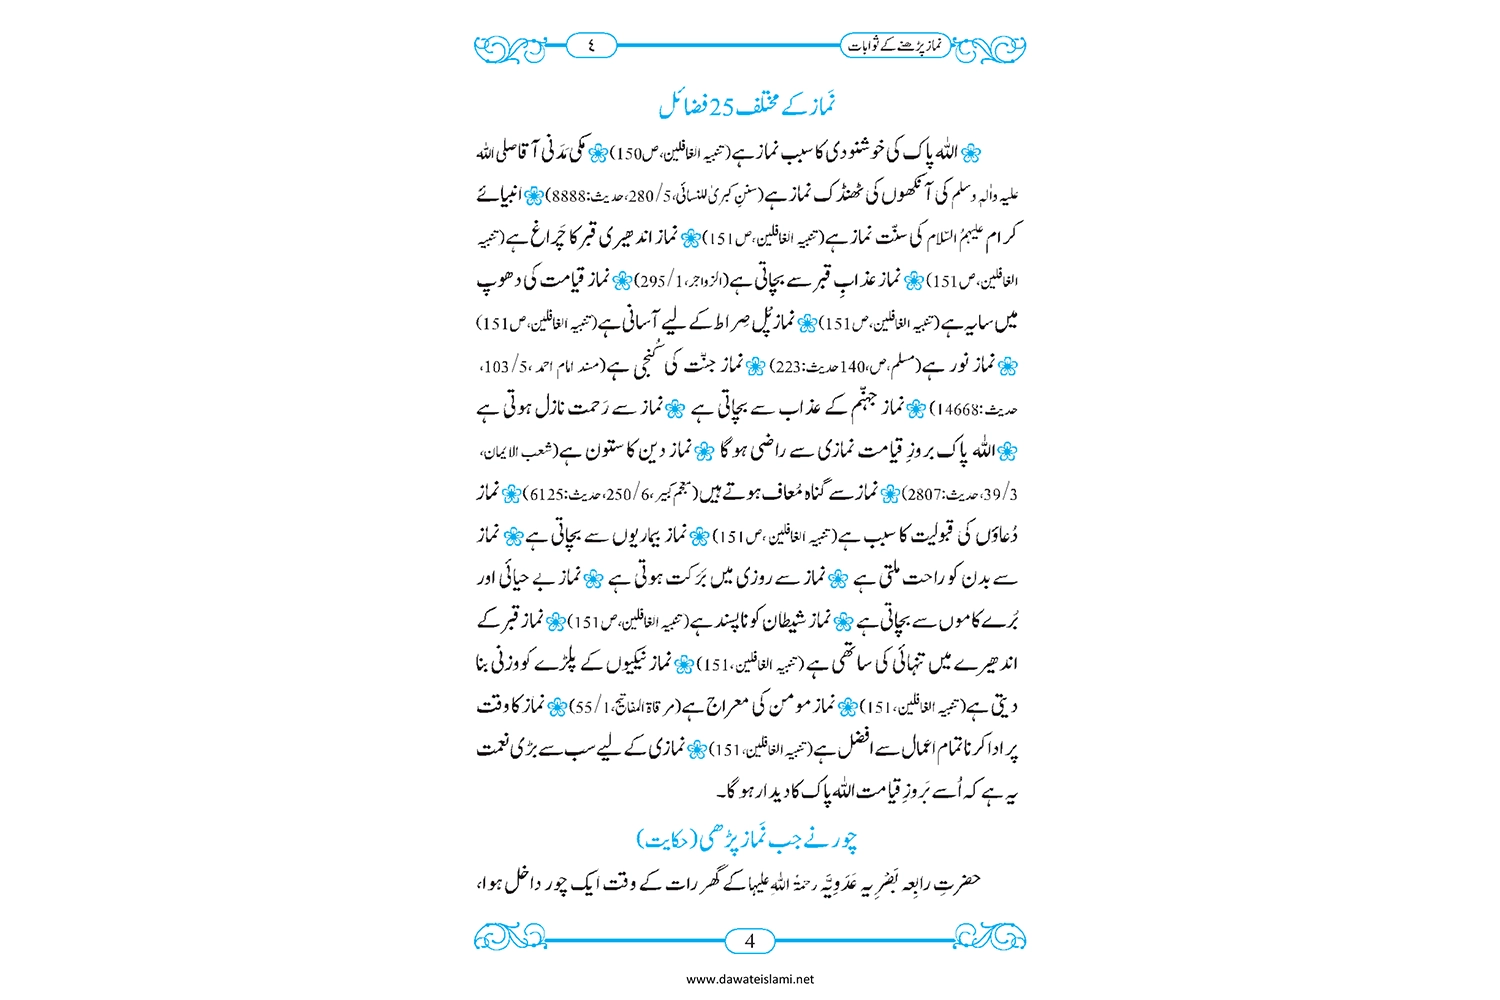 نماز پڑھنے کے ثوابات
٤
نَماز کے مختلف 25 فضائل
اللہ پاک کی خوشنودی کا سبب نماز ہے (تنبیہ الغافلین، ص150) مکی مَدَنی آقا صلی اللہ
علیہ واٰلہٖ وسلم کی آنکھوں کی ٹھنڈک نماز ہے (سننِ کبریٰ للنسائی، 5/280، حدیث:8888) انبیائے
کرام علیہمُ السّلام کی سنّت نماز ہے (تنبیہ الغافلین، ص151) نماز اندھیری قبر کا چَراغ ہے (تنبیہ
الغافلین، ص151) نماز عذابِ قبر سے بچاتی ہے (الزواجر، 1/295) نماز قیامت کی دھوپ
میں سایہ ہے (تنبیہ الغافلین، ص151) نماز پُل صِراط کے لیے آسانی ہے (تنبیہ الغافلین، ص151)
نماز نور ہے (مسلم، ص،140 حدیث:223) نماز جنّت کی کُنجی ہے (مسند امام احمد، 5/103،
حدیث:14668) نماز جہنّم کے عذاب سے بچاتی ہے نماز سے رَحمت نازل ہوتی ہے
اللہ پاک بروزِ قیامت نمازی سے راضی ہو گا نماز دین کا ستون ہے (شعب الایمان،
3/39، حدیث:2807) نماز سے گناہ مُعاف ہوتے ہیں (معجم کبیر، 6/250، حدیث:6125) نماز
دُعاؤں کی قبولیت کا سبب ہے (تنبیہ الغافلین، ص151) نماز بیماریوں سے بچاتی ہے نماز
سے بدن کو راحت ملتی ہے نماز سے روزی میں بَرَکت ہوتی ہے نماز بے حیائی اور
بُرے کاموں سے بچاتی ہے نماز شیطان کو ناپسند ہے (تنبیہ الغافلین، ص151) نماز قبر کے
اندھیرے میں تنہائی کی ساتھی ہے (تنبیہ الغافلین، 151) نماز نیکیوں کے پلڑے کو وزنی بنا
دیتی ہے (تنبیہ الغافلین، 151) نماز مومن کی معراج ہے (مرقاۃ المفاتیح، 1/55) نماز کا وقت
پر ادا کرنا تمام اعمال سے افضل ہے (تنبیہ الغافلین، 151) نمازی کے لیے سب سے بڑی نعمت
یہ ہے کہ اُسے بَروزِ قیامت اللہ پاک کا دیدار ہو گا۔
چور نے جب نَماز پڑھی (حکایت)
حضرتِ رابِعہ بَصْرِیہ عَدَوِیَّہ رحمۃُ اللہِ علیہا کے گھر رات کے وقت ایک چور داخل ہوا،
4
www.dawateislami.net